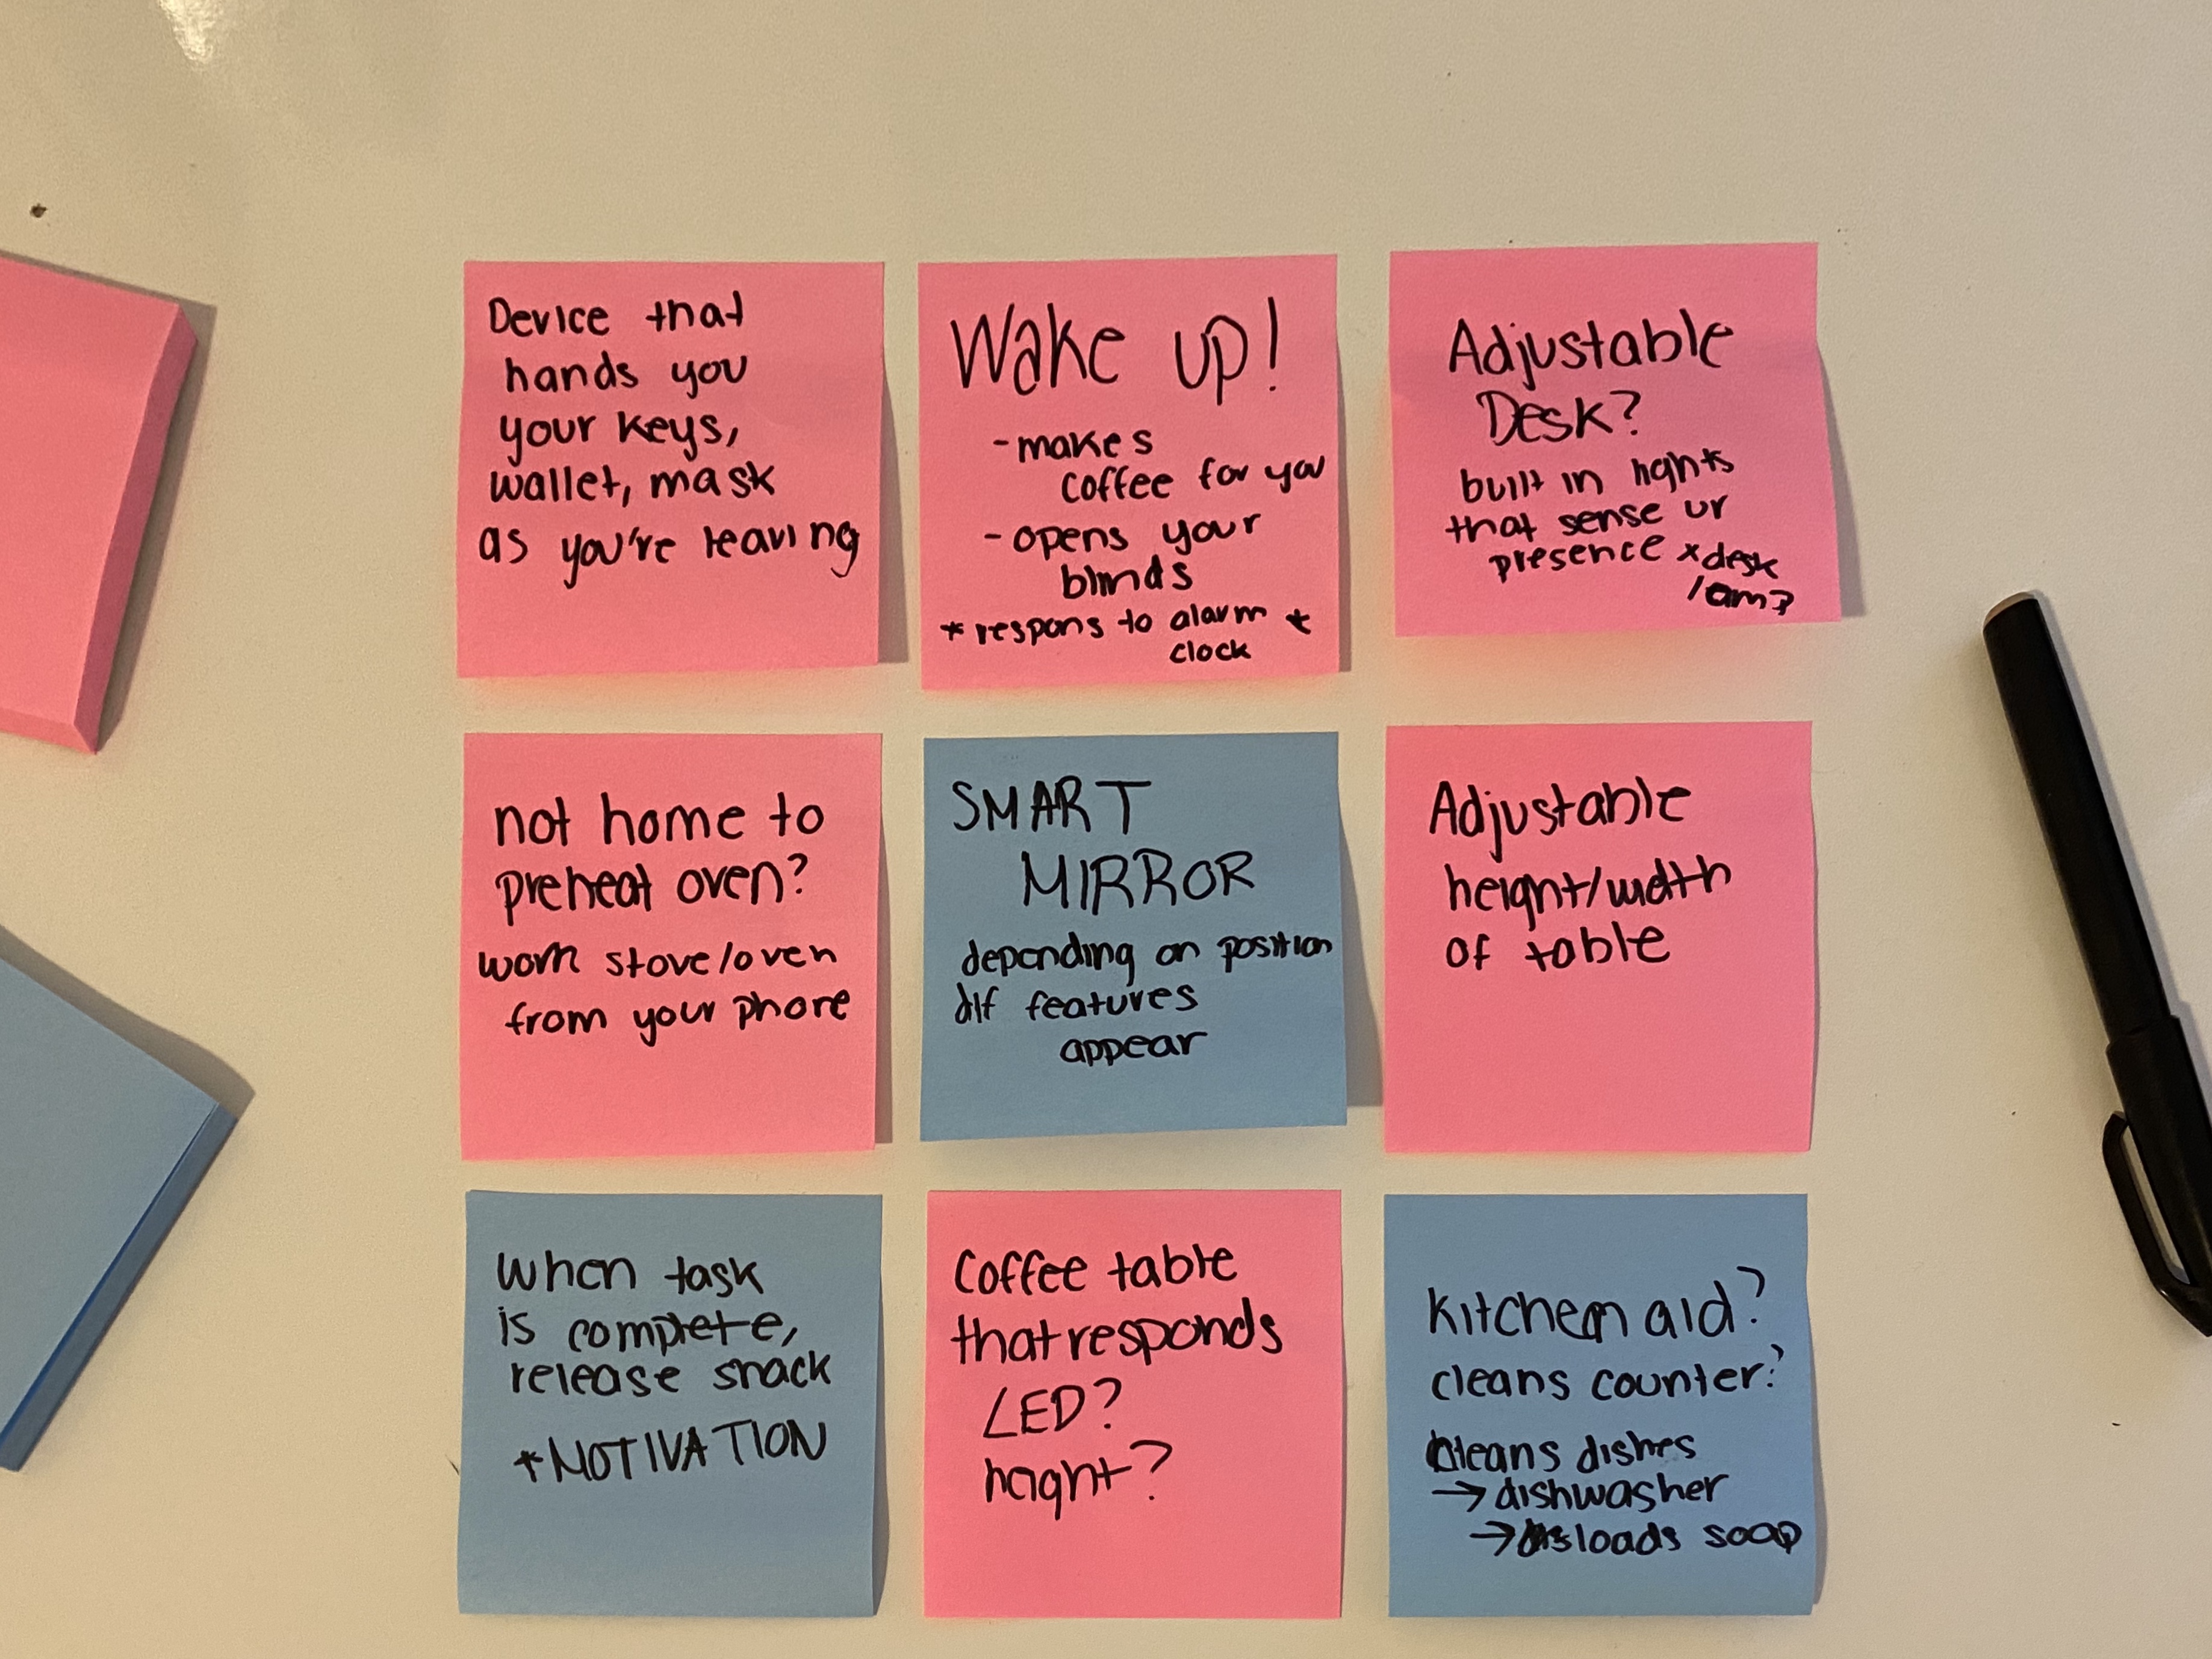 Device that
hands you
your keys,
wallet, mask
as you're leaving
Wake up!
- makes
coffee for you
- opens your
blinds
* respons to alarm *
clock
Adjustable
DESK?
built in lights
that sense ur
presence x desk
not home to
preheat oven?
work stove/oven
from your phone
SMART
MIRROR
depending on position
dif features
appear
Adjustable
height/width
of table
When task
is complete,
release snack
*MOTIVATION
Coffee table
that responds
LED?
height?
Kitchen aid?
cleans counter?
cleans dishes
→ dishwasher
→ loads soap